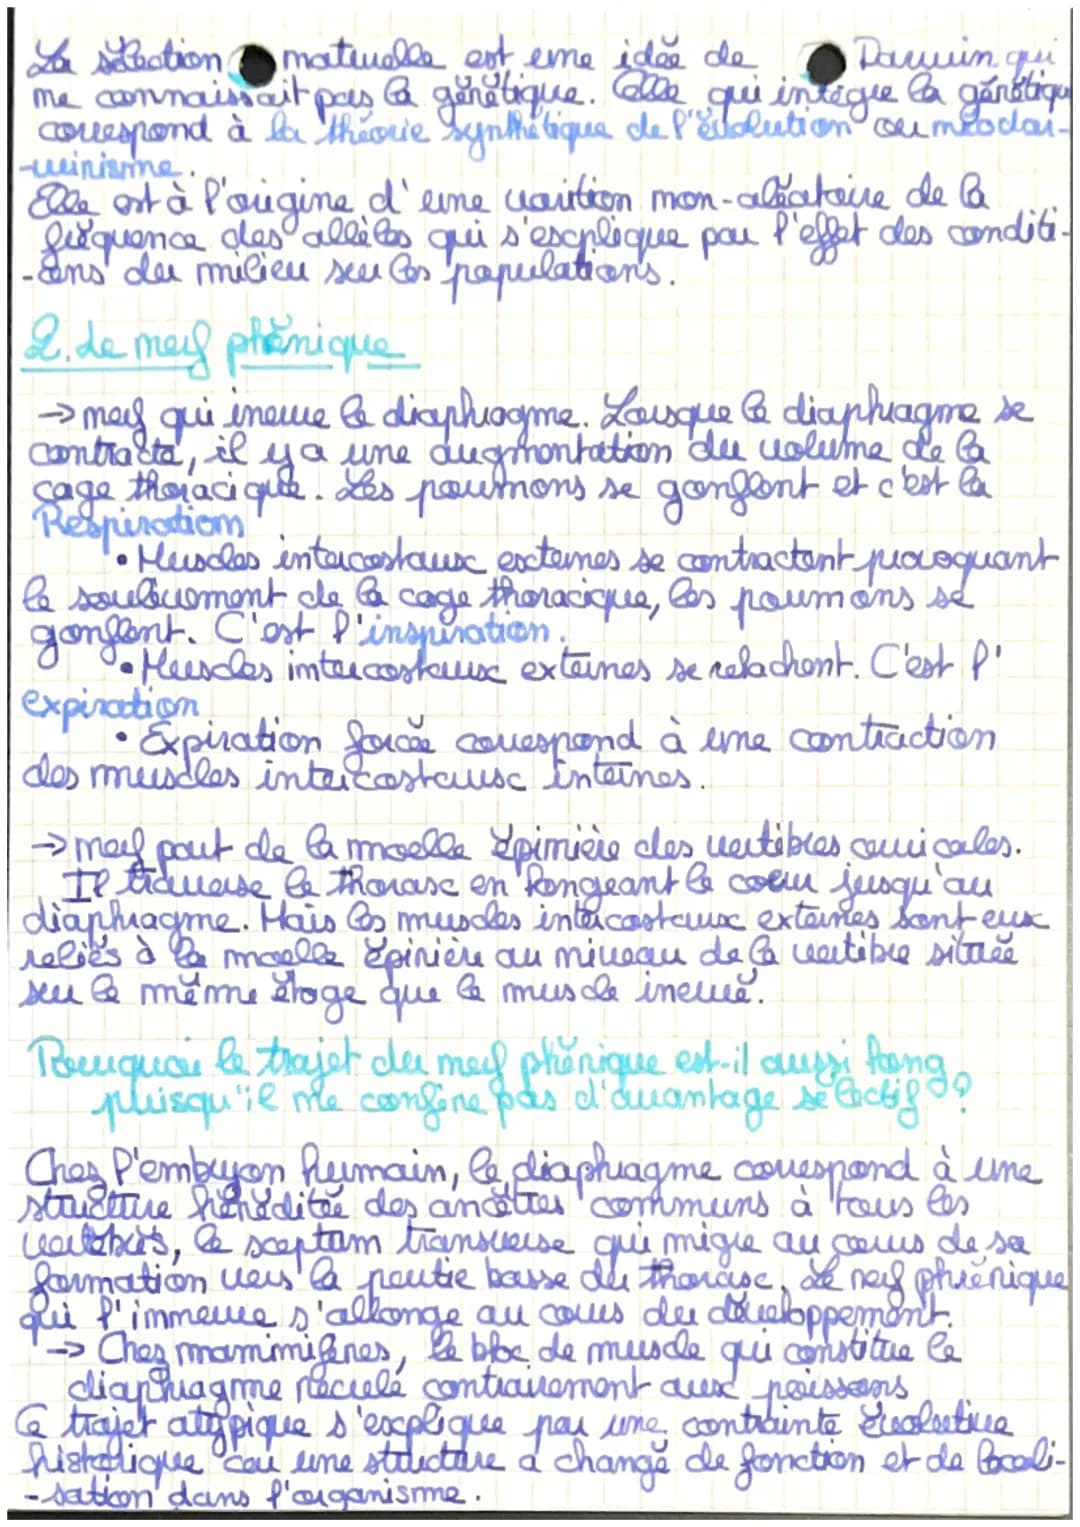 La sélection naturelle est une idée de Darwin qui
ne connaissait pas la génétique. Celle qui intègre la génétique
correspond à la théorie synthétique de l'évolution ou néodar-
-winisme.
Elle est à l'origine d'une vaition non-aléatoire de la
fréquence des allèles qui s'explique par l'effet des conditi-
-ons du milieu sur les populations.
2. Le nerf phénique
→ nerf qui inerve le diaphragme. Lorsque le diaphragme se
contracte, il y a une augmentation du volume de la
cage thoracique. Les poumons se gonflent et c'est la
Respiration
• Muscles intercostaux externes se contractent provoquant
le soulèvement de la cage thoracique, les poumons se
gonflent. C'est l'inspiration.
• Muscles intercostaux externes se relachent. C'est l'
expiration
• Expiration forcée correspond à une contraction
des muscles intercostaux internes.
→ nerf part de la moelle épinière des vertèbres cervicales.
Il traverse le thorax en longeant le coeur jusqu'au
diaphragme. Mais les muscles intercostaux externes sont eux
reliés à la moelle épinière au niveau de la vertèbre située
sur le même étage que le muscle inervé.
Pourquoi le trajet du nerf phénique est-il aussi long
puisqu'il ne confère pas d'avantage sélectif ?
Chez l'embryon humain, le diaphragme correspond à une
structure héréditée des ancêtres communs à tous les
vertébrés, le sceptum transverse qui migre au cours de sa
formation vers la partie basse du thorax. Le nerf phrénique
qui l'innerve s'allonge au cours du développement.
→ Chez mammifères, le bloc de muscle qui constitue le
diaphragme recule contrairement aux poissons
Ce trajet atypique s'explique par une contrainte évolutive
historique car une structure a changé de fonction et de locali-
-sation dans l'organisme.